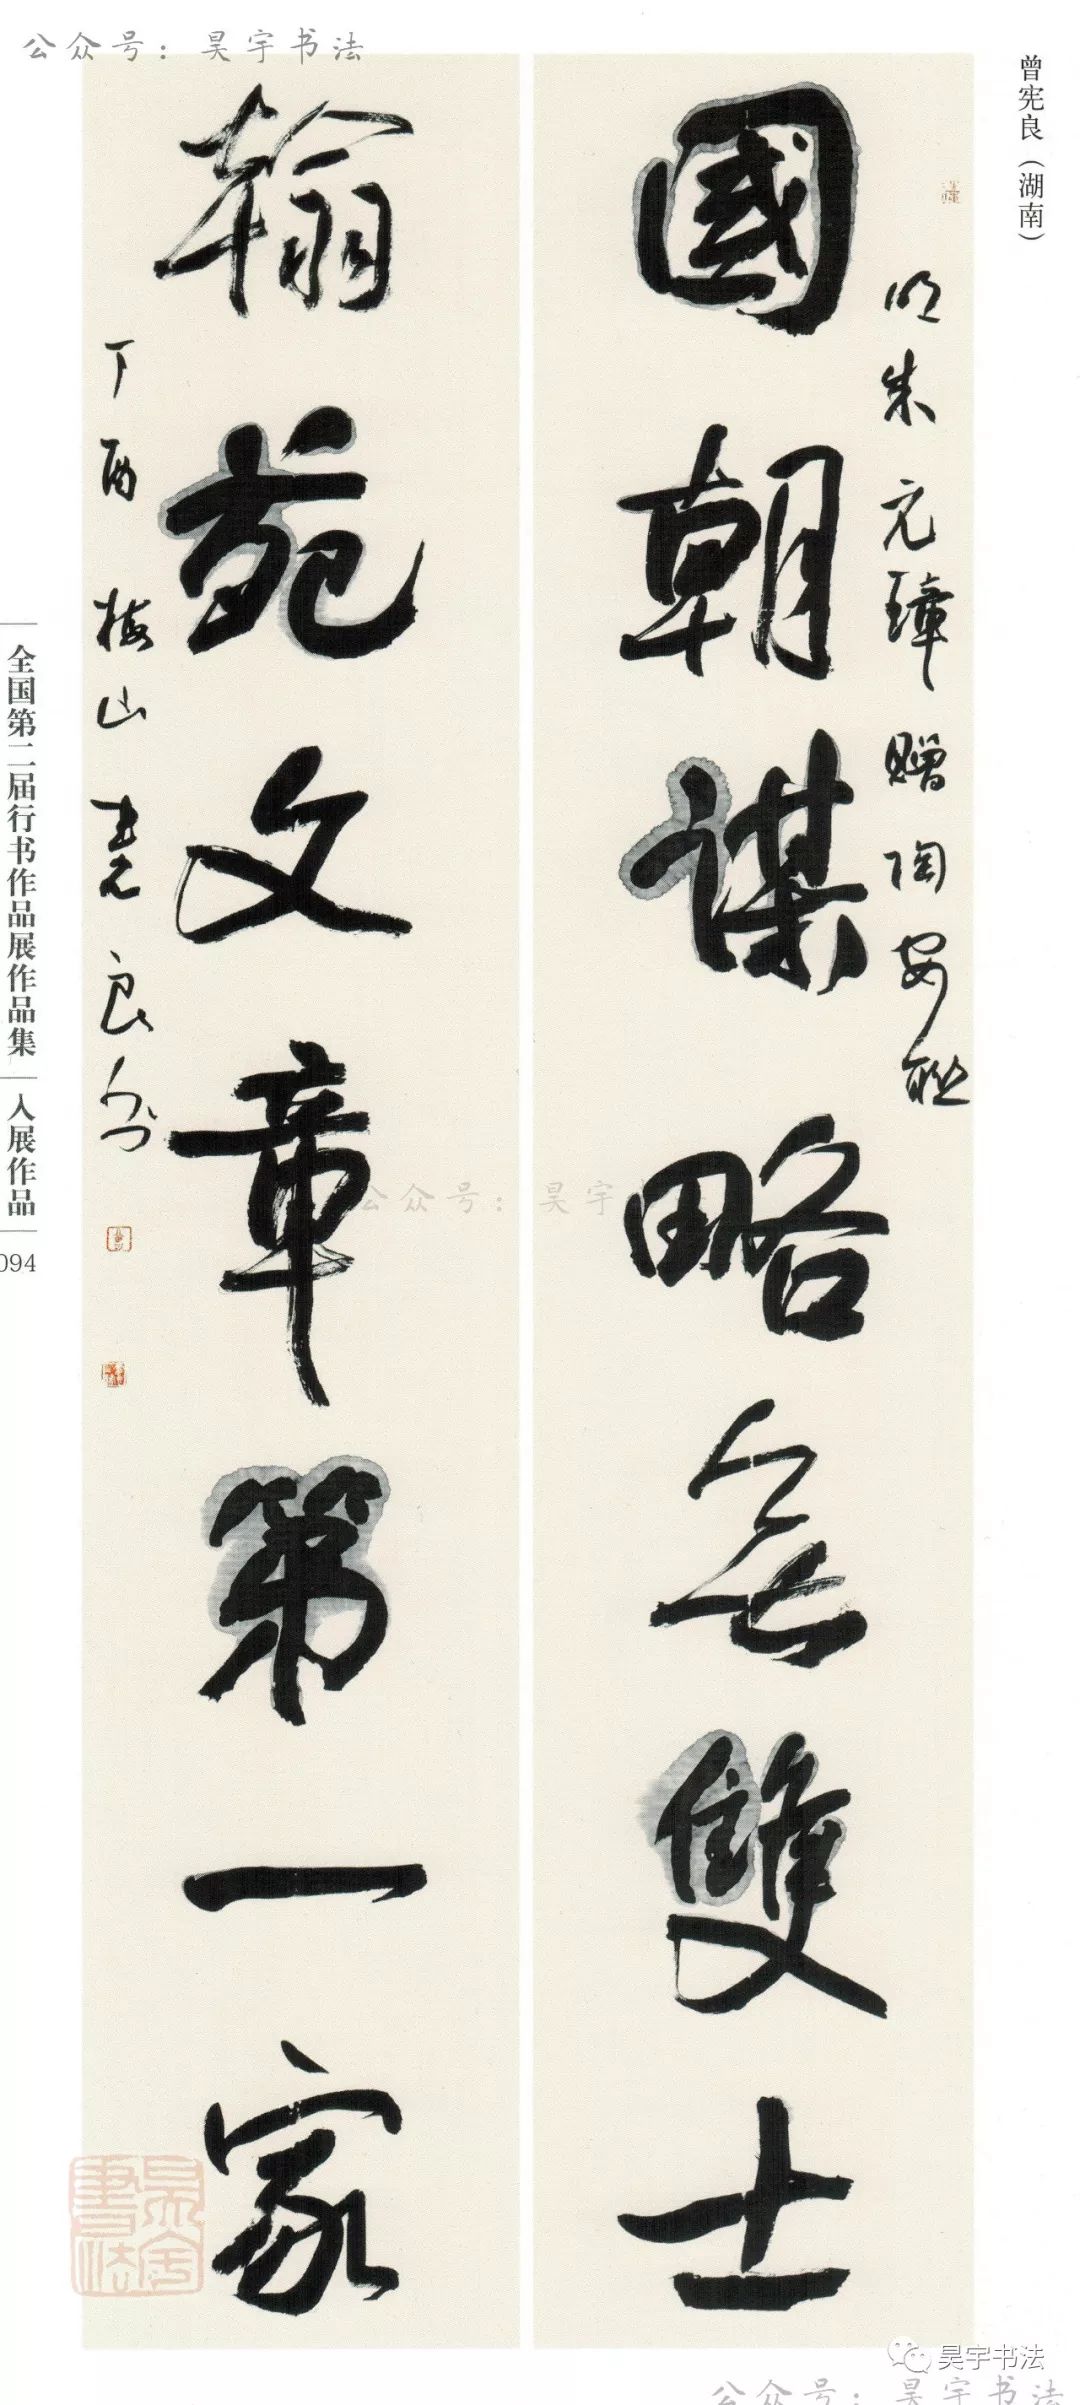 公众号：昊宇书法
曾宪良（湖南）
明朱元璋赠陶安联
國朝謀略无雙士
翰苑文章第一家
丁酉 梅山憲良
全国第二届行书作品展作品集
入展作品
094
公众号：昊宇
昊宇書法
昊宇书法
公众号：昊宇书法